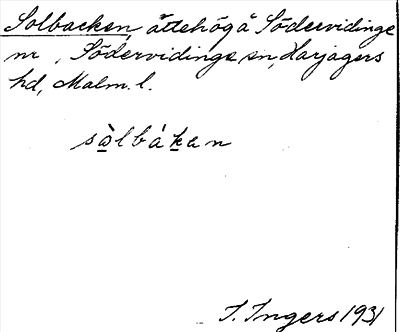 Solbacken, ättehög å Södervidinge
nr , Södervidinge sn, Harjagers
hd, Malm. l.
sòlbákan
I. Ingers 1931